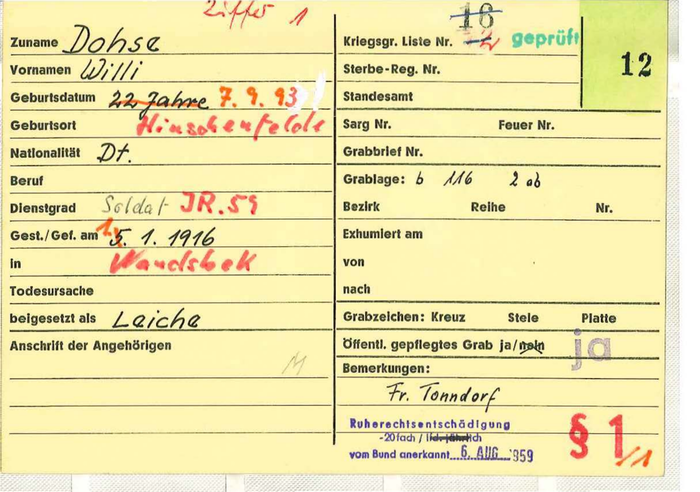 Ziffer 1
Zuname Dohse
Vornamen Willi
Geburtsdatum 22 Jahre 7. 9. 93
Geburtsort Hinschenfelde
Nationalität Dt.
Beruf
Dienstgrad Soldat JR. 59
Gest./Gef. am 5. 1. 1916
in Wandsbek
Todesursache
beigesetzt als Leiche
Anschrift der Angehörigen
M
16
Kriegsgr. Liste Nr. 2 geprüft
12
Sterbe-Reg. Nr.
Standesamt
Sarg Nr. Feuer Nr.
Grabbrief Nr.
Grablage: b 116 2 ob
Bezirk Reihe Nr.
Exhumiert am
von
nach
Grabzeichen: Kreuz Stele Platte
Öffentl. gepflegtes Grab ja/nein ja
Bemerkungen:
Fr. Tonndorf
Ruherechtsentschädigung
-20fach / lfd. jährlich
vom Bund anerkannt 6. AUG. 1959
§ 1/1